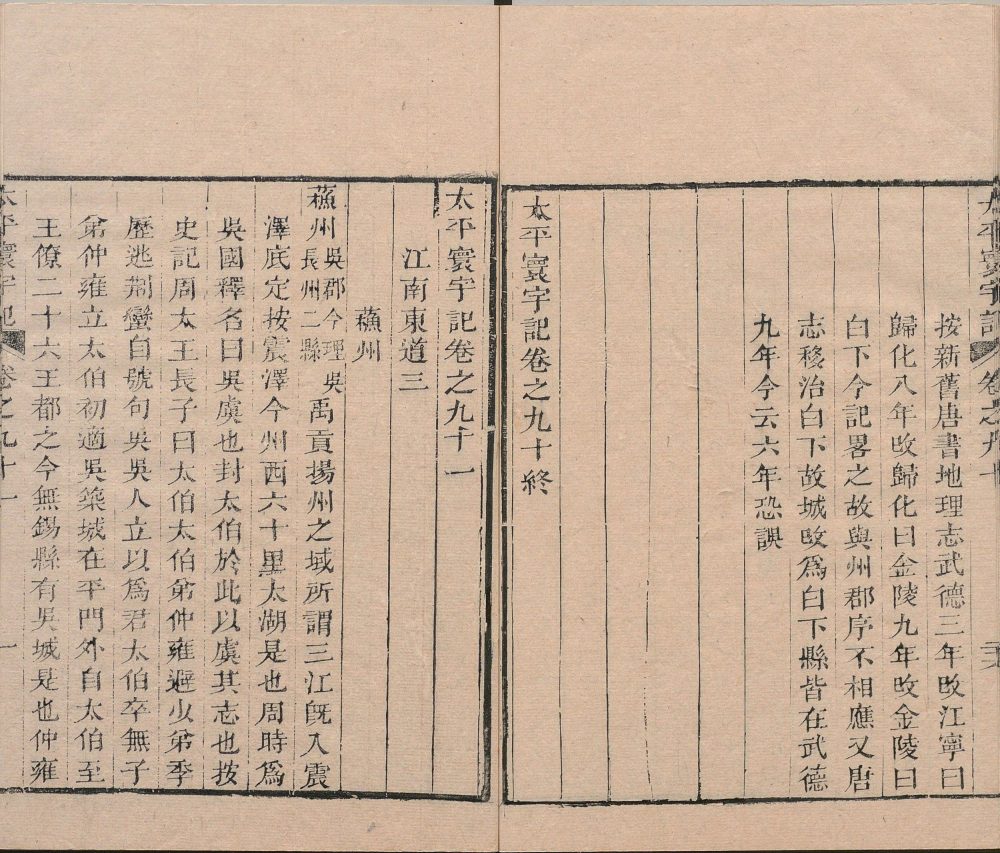 太平寰宇記 卷之九十
按新舊唐書地理志武德三年改江寧曰
歸化八年改歸化曰金陵九年改金陵曰
白下今記畧之故與州郡序不相應又唐
志移治白下故城改爲白下縣皆在武德
九年今云六年恐誤
太平寰宇記卷之九十終
太平寰宇記卷之九十一
江南東道三
蘓州
蘓州吳郡今理吳長州二縣禹貢揚州之域所謂三江旣入震
澤底定按震澤今州西六十里太湖是也周時爲
吳國釋名曰吳虞也封太伯於此以虞其志也按
史記周太王長子曰太伯太伯弟仲雍避少弟季
歷逃荆蠻自號句吳吳人立以爲君太伯卒無子
弟仲雍立太伯初適吳築城在平門外自太伯至
王僚二十六王都之今無錫縣有吳城是也仲雍
太平寰宇記 卷之九十一 一